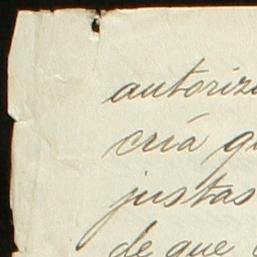 autoriz
cría q
justas
de que